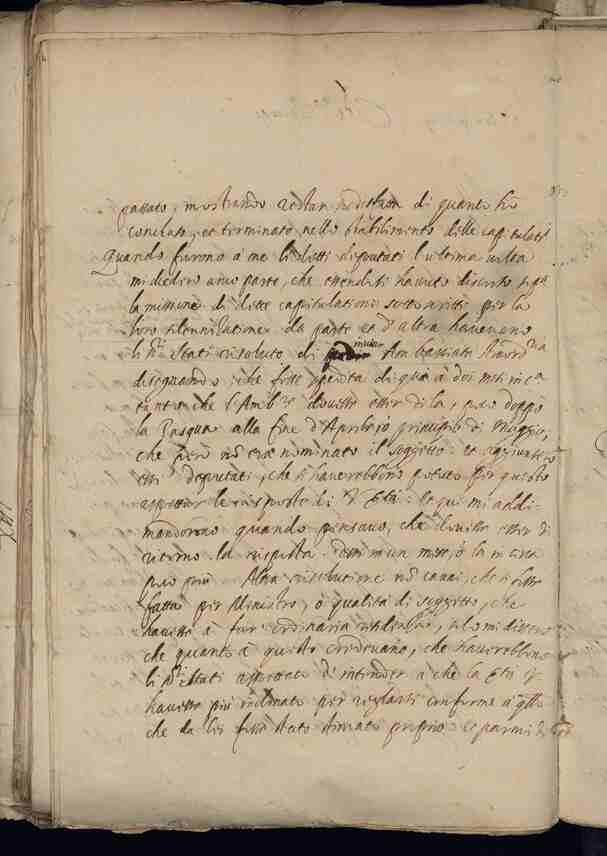 passato, mostrando restar sodisfaton di quanto hò
concluso, et terminato nello stabilimento delle capitulati
Quando furono à me li detti deputati l'ultima volta
mi diedero anco parte, che essendosi havuto discorso
la missione di dette capitulationi sottoscritte per la
loro solennilatione da parte et d'altra havevano
li Sti Stati risoluto di inviar Ambassiata
disegnando, che fosse spedita di quà à doi mesi in
tanto che l'Amb.r dovesse esser di là, poco doppo
la Pasqua alla fine d'Aprile, ò principio di Maggio,
che però nō era nominato il soggetto: et aggiunsero
essi deputati, che si haverebbono potuto per questo
aspettar le risposte di V. Stà: Et qui mi addi-
mandorono quando pensavo, che dovesse esser di
ritorno la risposta. Dissi in un mese, ò la in circa
poco più. Altra risolutione nō cavai, che si fosse
fatta per Ministro, ò qualità di soggetto, che
havesse à far ordinaria residenza, solo mi dissero
che quanto à questo credevano, che haverebbono
li Sti Stati aspettato d'intender à che la Stà V.
havesse più inclinato per regolarsi conforme à qllo
che da lei fosse stato stimato proprio. Et parmi di